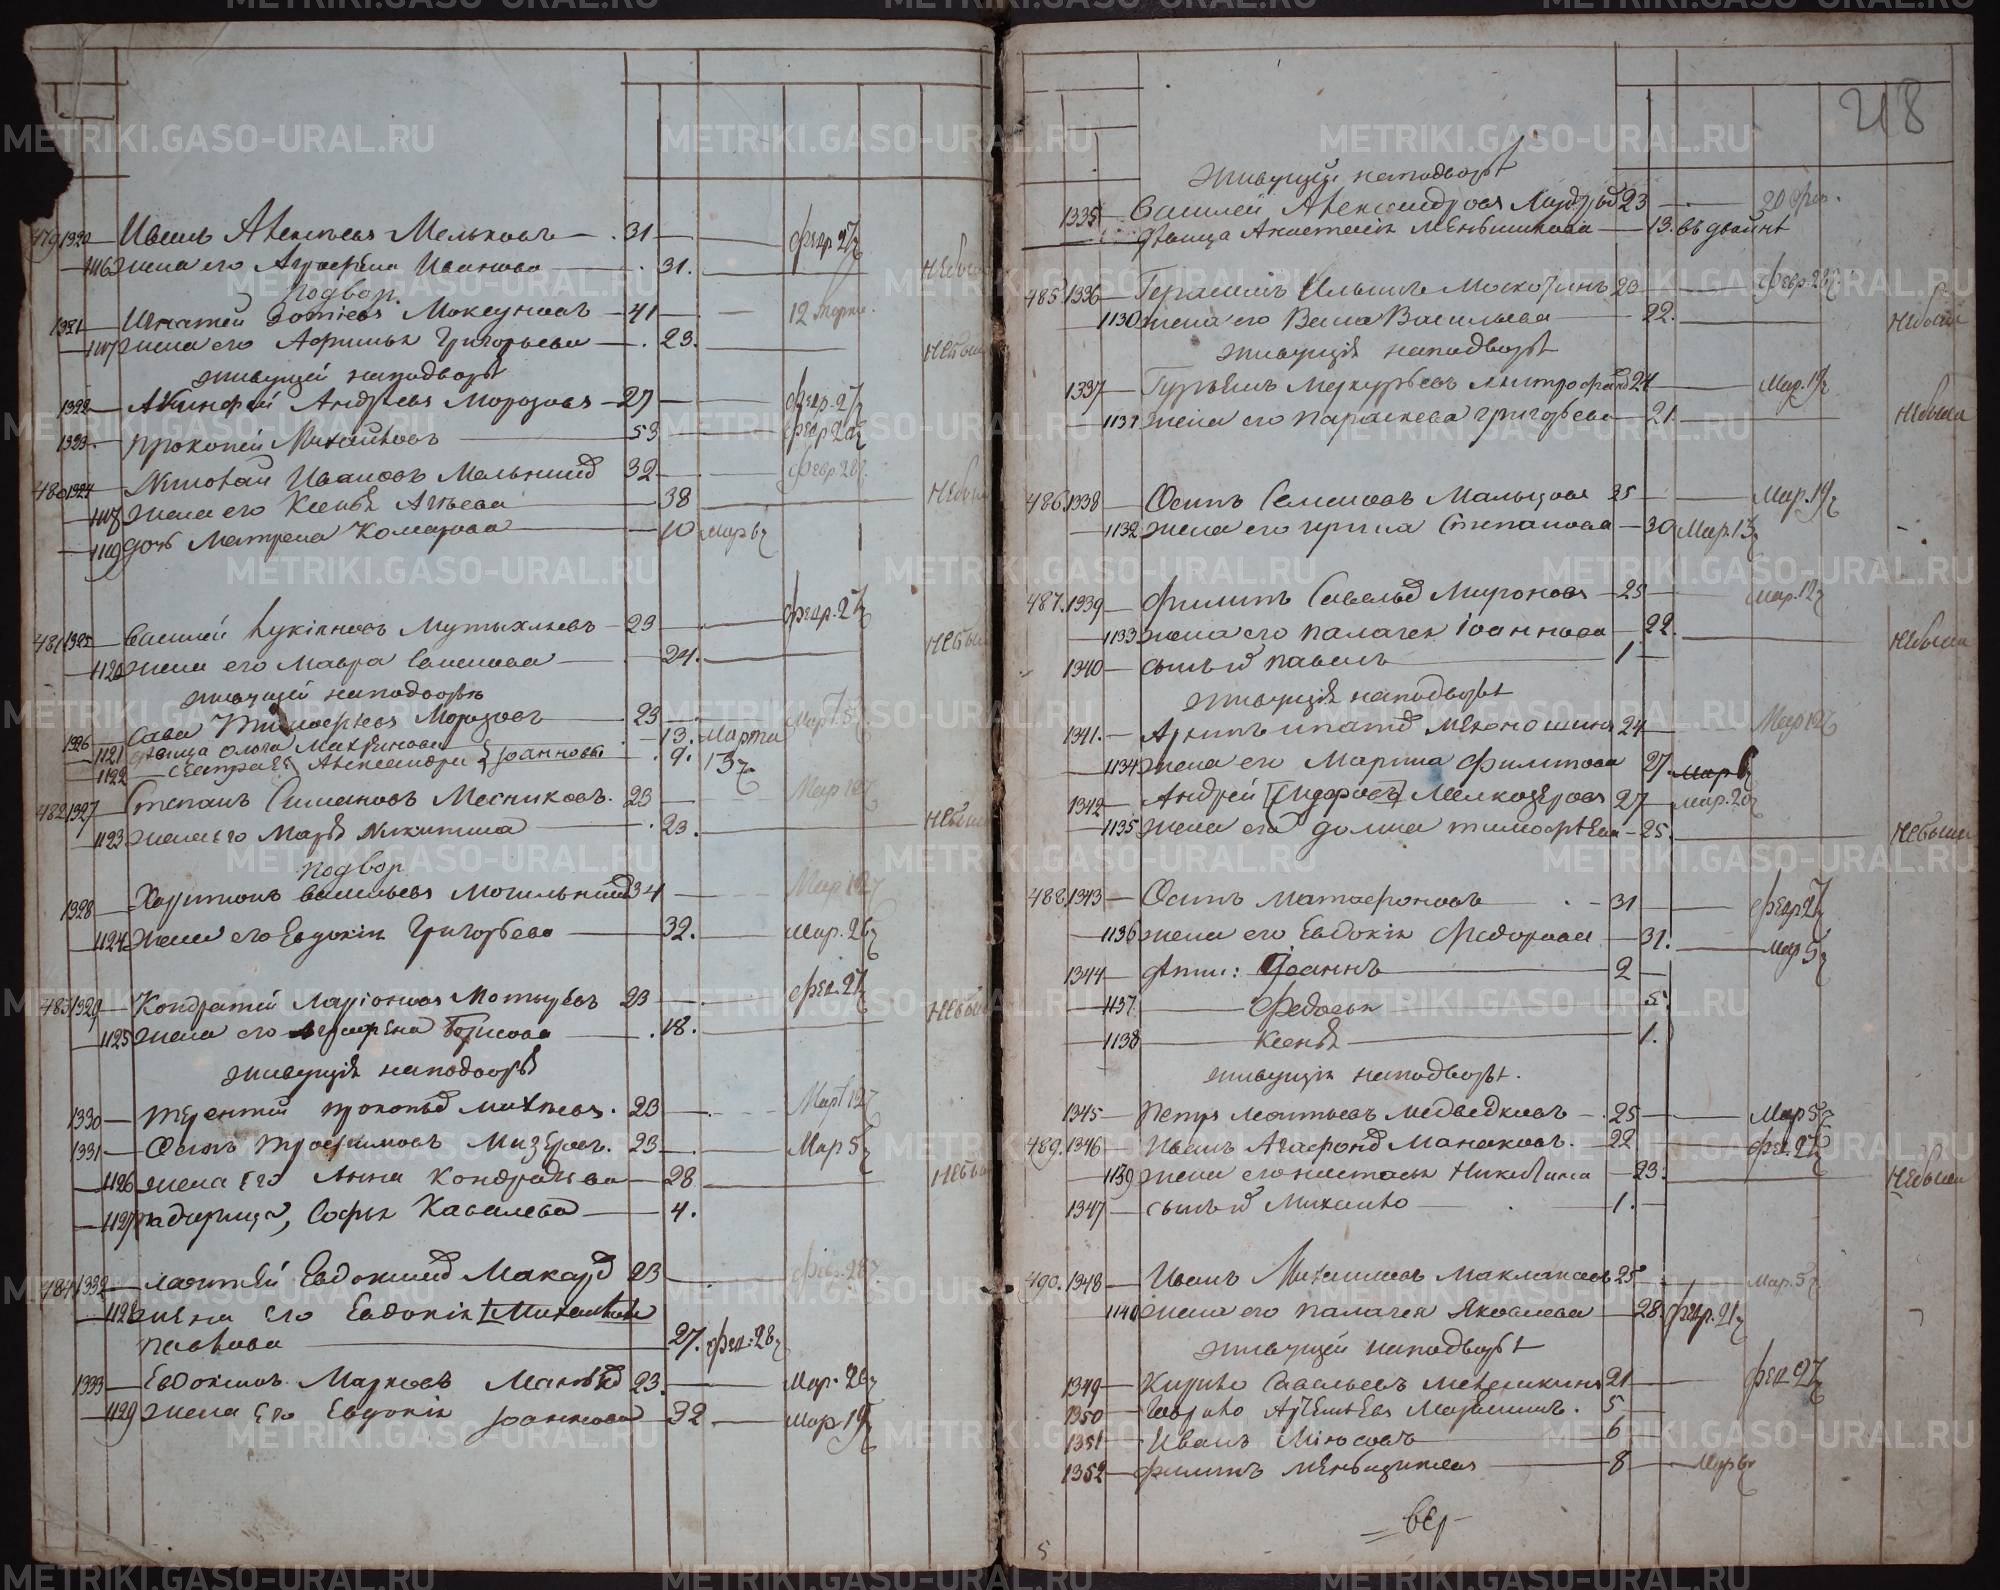 479 1320 Иванъ Алексѣевъ Мельковъ 31 февр. 27
1116 жена его Аграфена Иванова 31. небыла
подвор.
1321 Игнатей Зотиевъ Мокеуновъ 41 12 марта.
1117 жена его Афимья Григорьева 23. небыла
живущей наподворѣ
1322 Акинфей Андреевъ Морозовъ 27 февр. 27
1323 Прокопей Михайловъ 53 февр 20
480 1324 Николай Ивановъ Мельниковъ 32 февр. 28
1118 жена его Ксенья 38 небыла
1119 дочь Матрена Комарова 10 мар 6
481 1325 Василей Лукіяновъ Мутыхляевъ 23 февр. 27
1120 жена его Мавра Семенова 24. небыла
живущей наподворѣ
1326 Сава Тимофеевъ Морозовъ 23 Март. 5
1121 девица Олога 13. Марта
1122 сестра ея Александра Іоанновы 9. 13
482 1327 Степанъ Симановъ Месниковъ. 23 Мар 10
1123 жена его Марья Никитина 23. небыла
подвор
1328 Харитонъ Васильевъ Могильников 34 Мар 12
1124 жена его Евдокія Григорьева 32. мар. 26
483 1329 Кондратей Ларіоновъ Мотыревъ 23 фев. 27
1125 жена его Аграфена Борисова 18. небыла
живущія наподворѣ
1330 Терентей Прокопьевъ Михѣевъ. 23 Март 12
1331 Осипъ Трофимовъ Мизеровъ. 23 Мар 5
1126 жена его Анна Кондратьева 28 небыла
1127 падчерица, Софья Кавалева 4.
484 1332 Лаврентей Евдокимовъ Макаров 23 февр. 28
1128 жена его Евдокія [Михайлова
Павлова 27. фев: 28
1333 Евдокимъ Марковъ 23. Мар. 26
1129 жена его Евдокія Іоаннова 32 Мар 19
218
живущей наподворѣ
1335 Василей Александровъ 23 20 фев.
девица Анастасія Меньшикова 13. въ двойнѣ
485. 1336 Герасимъ Ильинъ Москотинъ 23 февр. 28
1130 жена его Васа Васильева 22. небыла
живущія наподворѣ
1337 Гурьянъ Меркурьевъ Митрофанов 24 Мар. 19
1131 жена его Параскева Григорьева 21. небыла
486. 1338 Осипъ Семеновъ Мальцовъ 35 Мар. 19
1132 жена его Ирина Степанова 30 Мар. 13
487. 1339 Филипъ Савельев Мироновъ 25 мар. 12
1133 жена его Палагея Іоаннова 22. небыла
1340 сынъ их Павелъ 1
живущія наподворѣ
1341. Архипъ Ипатов Мехоношинъ 24 Мар 12
1134 жена его Марина Филипова 27. мар 6
1342 Андрей [Сидоровъ] Мелкозеровъ 27 мар. 20
1135 жена его Домна Тимофеева 25. небыла
488. 1343 Осипъ Матафоновъ 31 февр 27
1136 жена его Евдокія Федорова 31. Мар 5
1344 дети: Іоаннъ 2
1137 Федосья 5.
1138 Ксенья 1.
живущія наподворѣ.
1345 Петръ Леонтьевъ Медведковъ 25 Мар 5
489. 1346 Иванъ Агафонов Манаковъ. 22 фев. 27
1139 жена его Настасья Никитина 23. небыла
1347 сынъ их Михаило 1.
490. 1348 Иванъ Михаиловъ Маклаковъ 25 Мар. 5
1140 жена его Палагея Яковлева 28. февр. 21
живущей наподворѣ
1349 Кирило Савельевъ Мехряинъ 21 фев 27
1350 Гаврило Артемьевъ Марьинъ. 5
1351 Иванъ Мінсовъ 6
1352 Филипъ Меньщиковъ 8 Мар 6
вер
5
METRIKI.GASO-URAL.RU